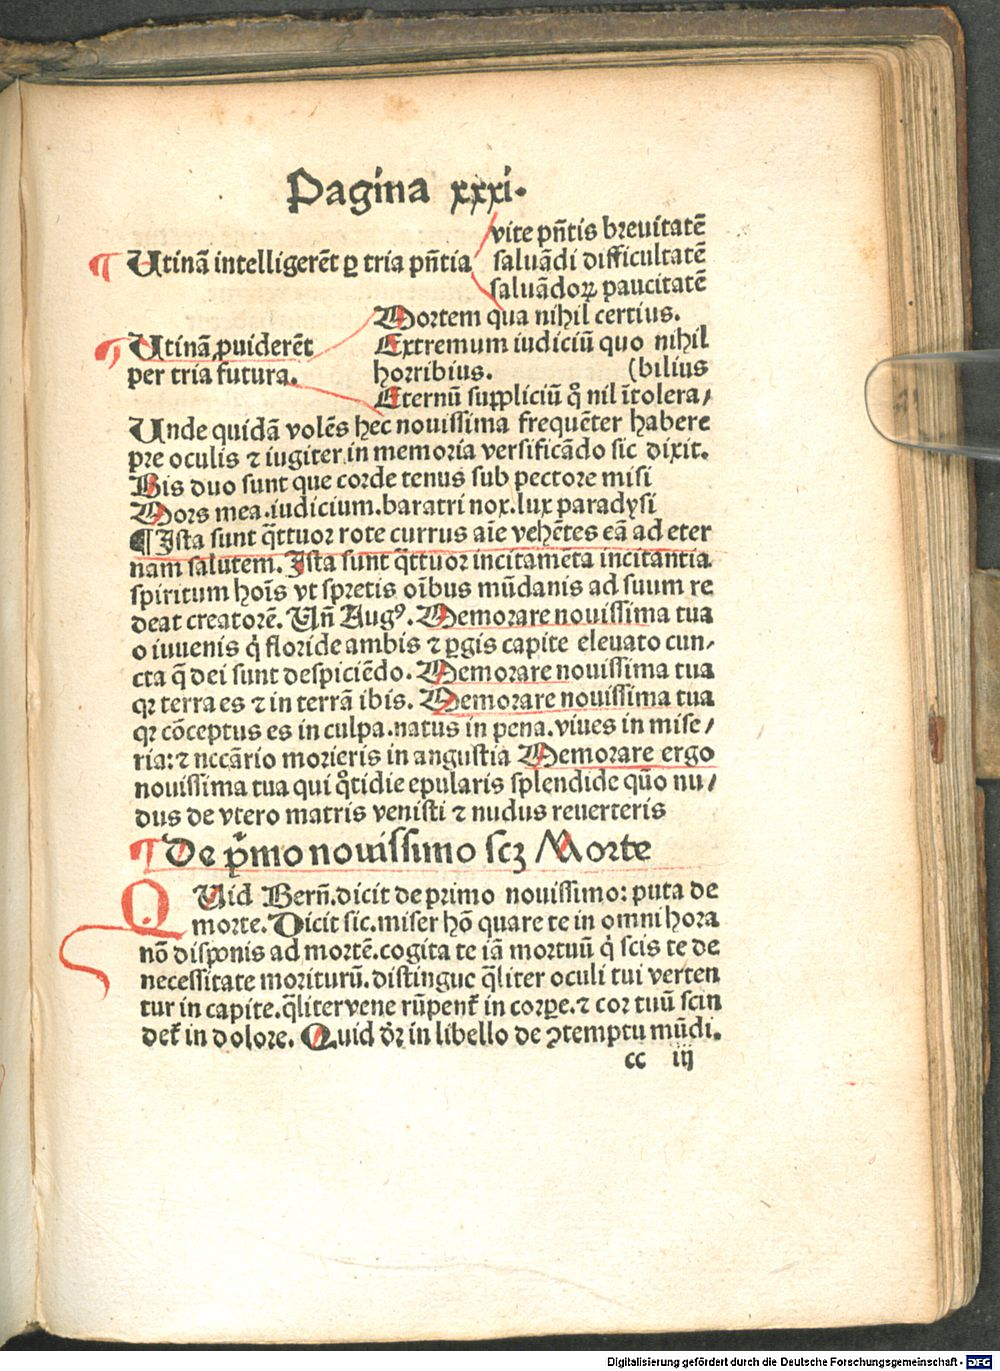 Pagina xxxi.
vite pn̄tis breuitatē
¶ Utinā intelligerēt ꝑ tria pn̄tia saluādi difficultatē
saluādoꝝ paucitatē
Mortem qua nihil certius.
Utinā ꝓuiderēt Extremum iudiciū quo nihil
per tria futura. horribius. (bilius
Eternū suppliciū qͦ nil ītolera/
Unde quidā volēs hec nouissima frequēter habere
pre oculis ⁊ iugiter in memoria versificādo sic dixit.
Bis duo sunt que corde tenus sub pectore misi
Mors mea.iudicium.baratri nox.lux paradysi
¶ Ista sunt q̄ttuor rote currus aīe vehētes eā ad eter
nam salutem. Ista sunt q̄ttuor incitamēta incitantia
spiritum hoīs vt spretis oībus mūdanis ad suum re
deat creatorē. Un̄ Augꝰ. Memorare nouissima tua
o iuuenis q̇ floride ambis ⁊ ꝑgis capite eleuato cun/
cta q̄ dei sunt despiciēdo. Memorare nouissima tua
qꝛ terra es ⁊ in terrā ibis. Memorare nouissima tua
qꝛ cōceptus es in culpa.natus in pena.viues in mise/
ria:⁊ nccārio morieris in angustia Memorare ergo
nouissima tua qui qͦtidie epularis splendide quō nu/
dus de vtero matris venisti ⁊ nudus reuerteris
¶ De pͥmo nouissimo scꝫ Morte
QUid Bern̄.dicit de primo nouissimo: puta de
morte. Dicit sic.miser hō quare te in omni hora
nō disponis ad mortē.cogita te iā mortuū q̇ scis te de
necessitate moriturū.distingue q̄liter oculi tui verten
tur in capite.q̄liter vene rūpent᷑ in corꝑe.⁊ cor tuū scin
det᷑ in dolore. Quid dr̄ in libello de ꝯtemptu mūdi.
cc iij
Digitalisierung gefördert durch die Deutsche Forschungsgemeinschaft - DFG